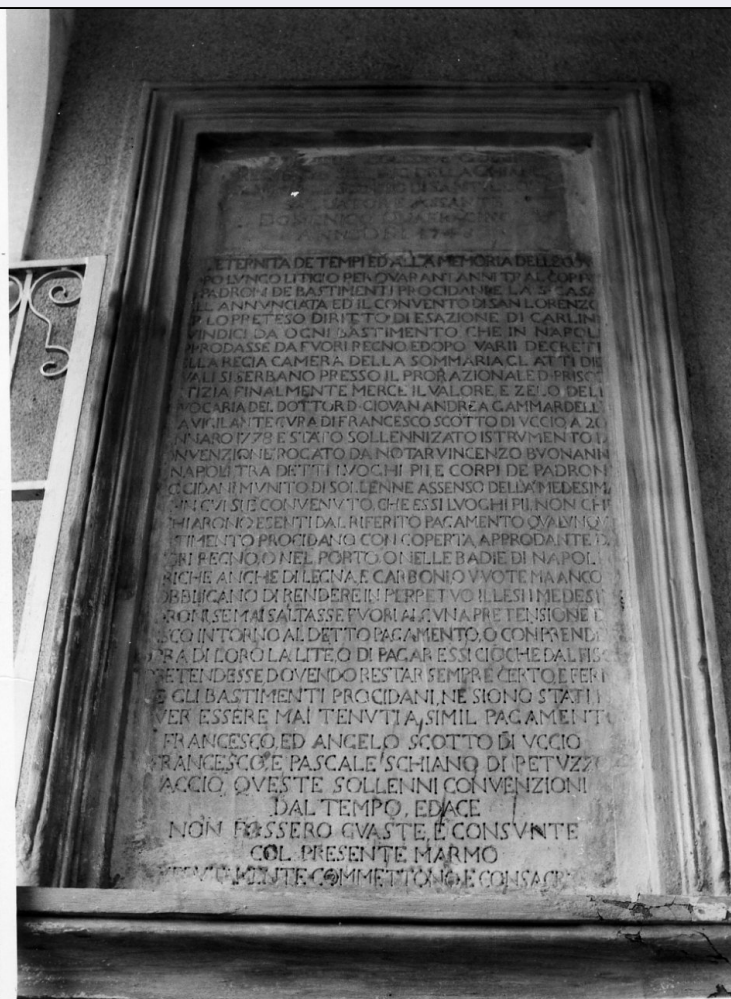 DOMENICO
ANNO D 174
ETERNITA DE TEMPI ED ALLA MEMORIA DELL
PO LVNGO LITIGIO PER QVARANT ANNI TRA L CORP
PADRONI DE BASTIMENTI PROCIDANI E LA S CASA
LL ANNVNCIATA ED IL CONVENTO DI SAN LORENZO
R LO PRETESO DIRITTO DI ESAZIONE DI CARLIN
VINDICI DA OGNI BASTIMENTO CHE IN NAPOL
PRODASSE DA FVORI REGNO EDOPO VARII DECRETI
LLA REGIA CAMERA DELLA SOMMARIA GL ATTI DE
VALI SI SERBANO PRESSO IL PRORAZIONALE D PRISCO
TIZIA FINALMENTE MERCE IL VALORE E ZELO DELL
VOCARIA DEL DOTTOR D GIOVAN ANDREA GAMMARDELL
A VIGILANTE CVRA DI FRANCESCO SCOTTO DI VCCIO A 20
NNARO 1778 E STATO SOLLENNIZATO ISTRVMENTO D
NVENZIONE ROGATO DA NOTAR VINCENZO BVONANN
NAPOLI TRA DETTI LVOGHI PII E CORPI DE PADRON
CIDANI MVNITO DI SOLLENNE ASSENSO DELLA MEDESIMA
IN CVI SI E CONVENVTO, CHE ESSI LVOGHI PII, NON CH
HIARONO ESENTI DAL RIFERITO PAGAMENTO QVALVNQV
TIMENTO PROCIDANO CON COPERTA APPRODANTE D
ORI REGNO, O NEL PORTO, O NELLE BADIE DI NAPOL
RICHE ANCHE DI LEGNA, E CARBONI O VVOTE MA ANCO
OBBLIGANO DI RENDERE IN PERPETVO ILLESI I MEDESI
RONI SE MAI SALTASSE FVORI ALCVNA PRETENSIONE D
SCO INTORNO AL DETTO PAGAMENTO, O CON PRENDE
PRA DI LORO LA LITE, O DI PAGAR ESSI CIOCHE DAL FIS
RETENDESSE DOVENDO RESTAR SEMPRE CERTO, E FER
E GLI BASTIMENTI PROCIDANI, NE SIONO STATI
VER ESSERE MAI TENVTI A, SIMIL PAGAMENT
FRANCESCO, ED ANGELO SCOTTO DI VCCIO
FRANCESCO, E PASCALE SCHIANO DI PETVZZ
ACCIO QVESTE SOLLENNI CONVENZIONI
DAL TEMPO, EDACE
NON FOSSERO GVASTE, E CONSVNTE
COL PRESENTE MARMO
COMMETTONO E CONSACR